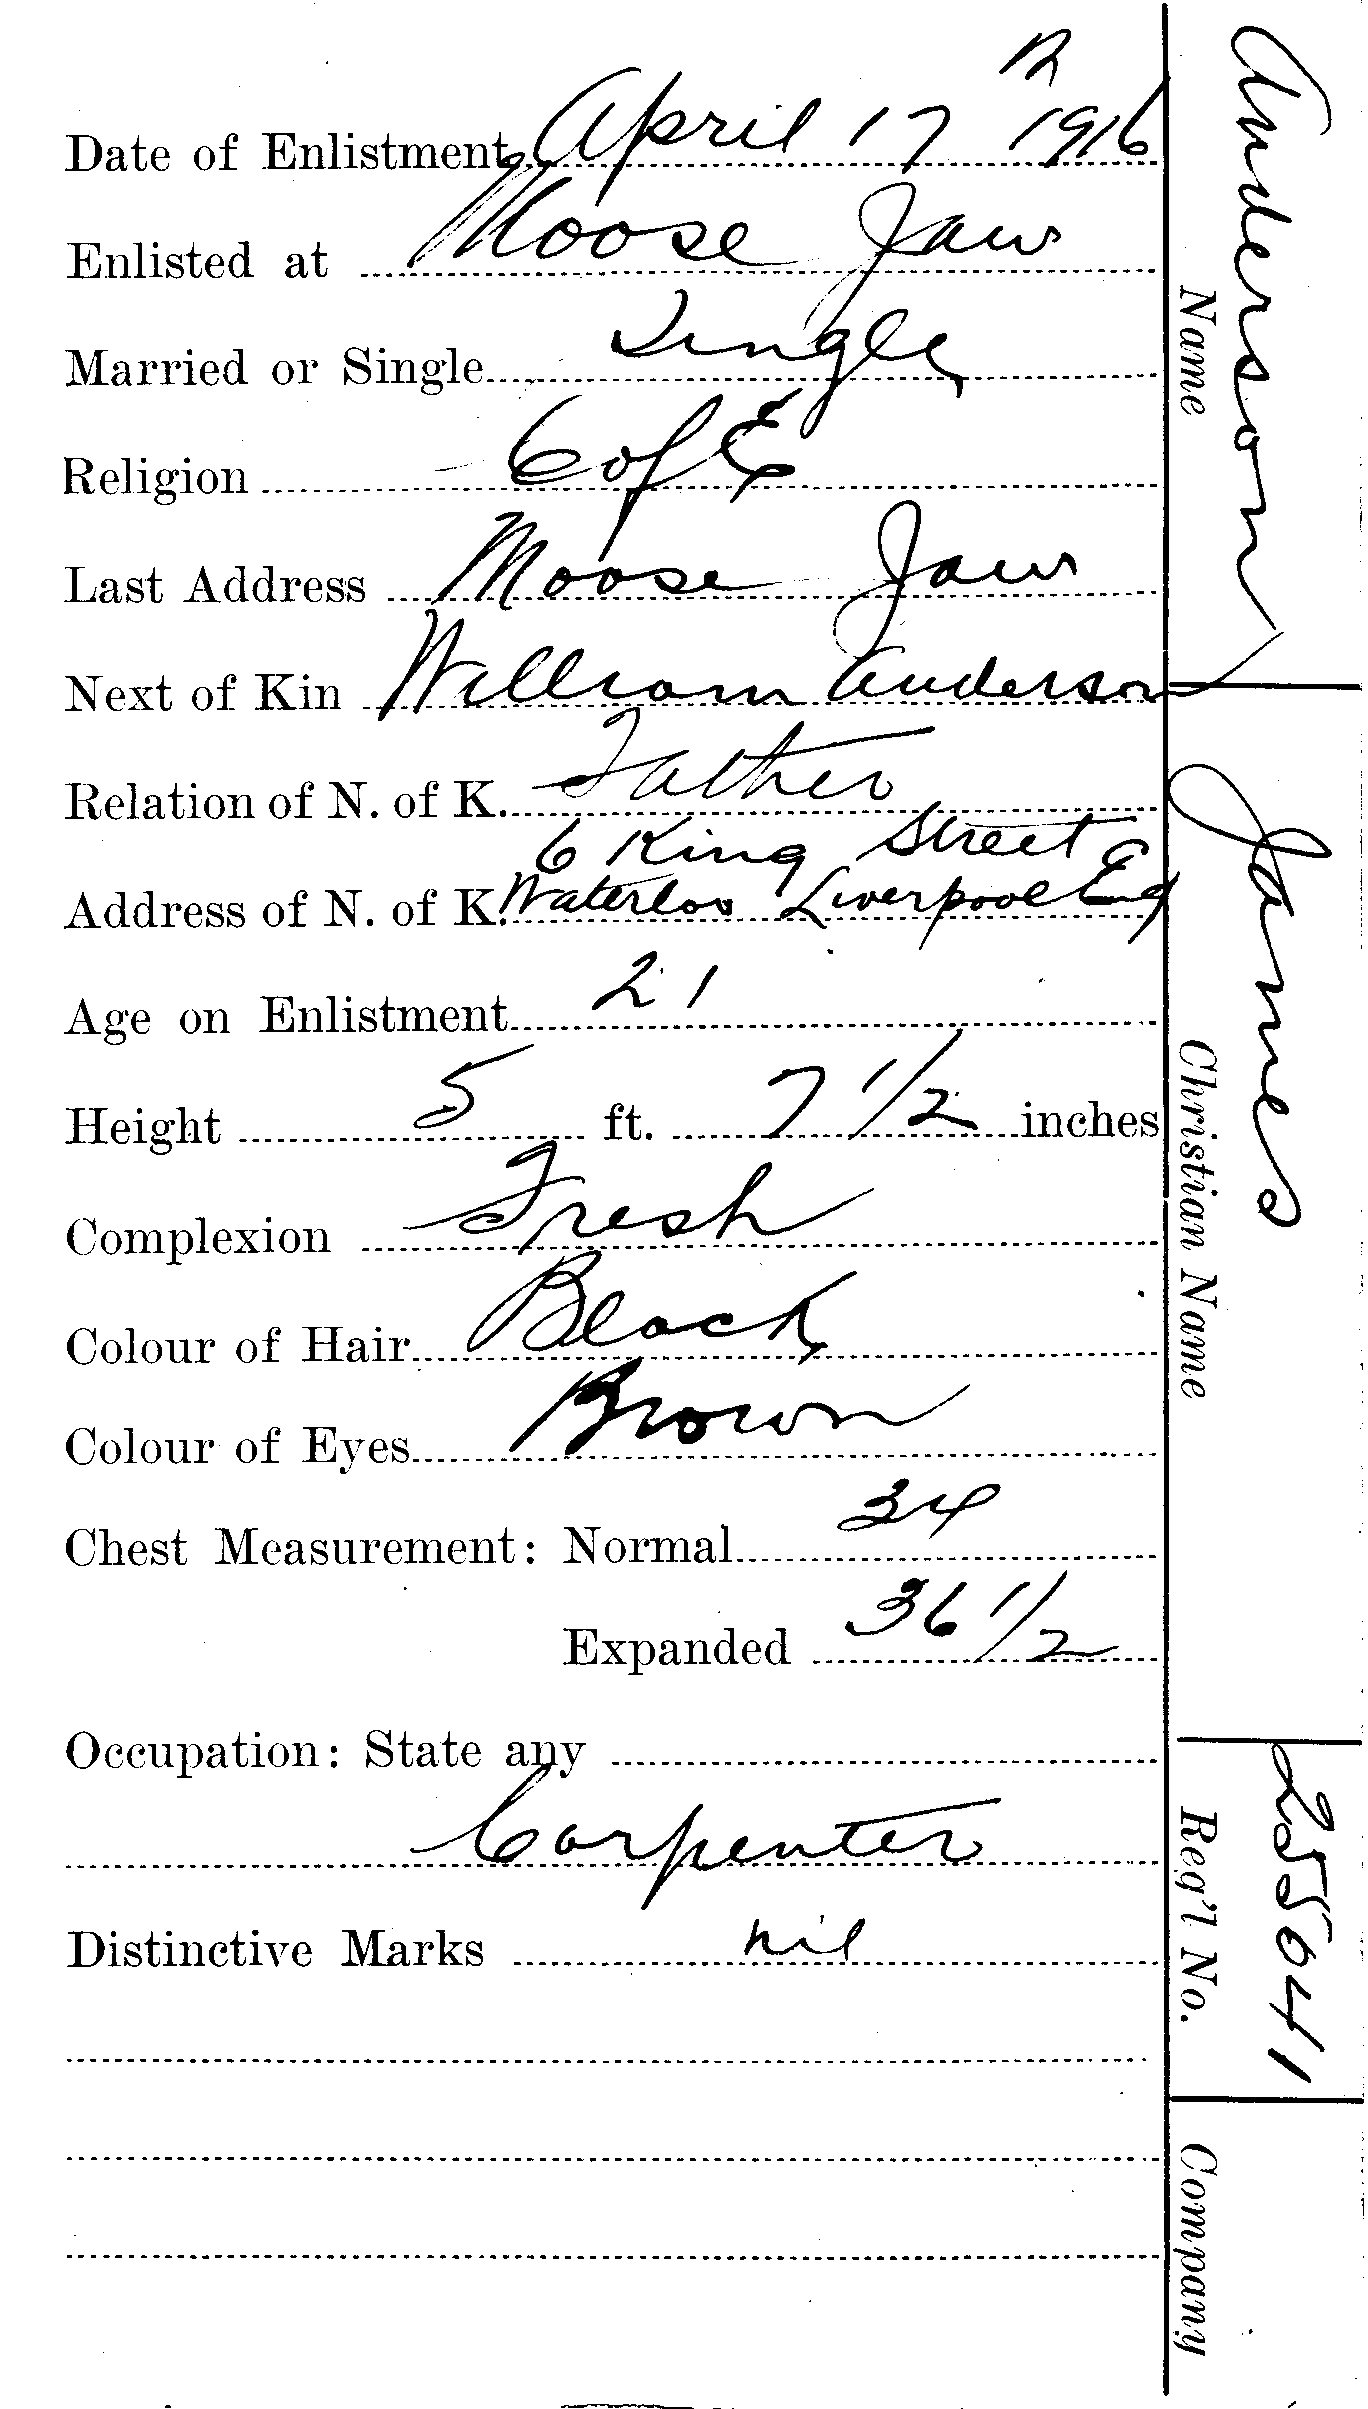 Date of Enlistment April 17 1916
Enlisted at Moose Jaw
Married or Single Single
Religion C of E
Last Address Moose Jaw
Next of Kin William Anderson
Relation of N. of K. Father
6 King Street
Address of N. of K. Waterloo Liverpool Eng
Age on Enlistment 21
Height 5 ft. 7 1/2 inches
Complexion Fresh
Colour of Hair Black
Colour of Eyes Brown
Chest Measurement: Normal 34
Expanded 36 1/2
Occupation: State any
Carpenter
Distinctive Marks nil
Anderson James 255041
Name Christian Name Reg'l No. Company